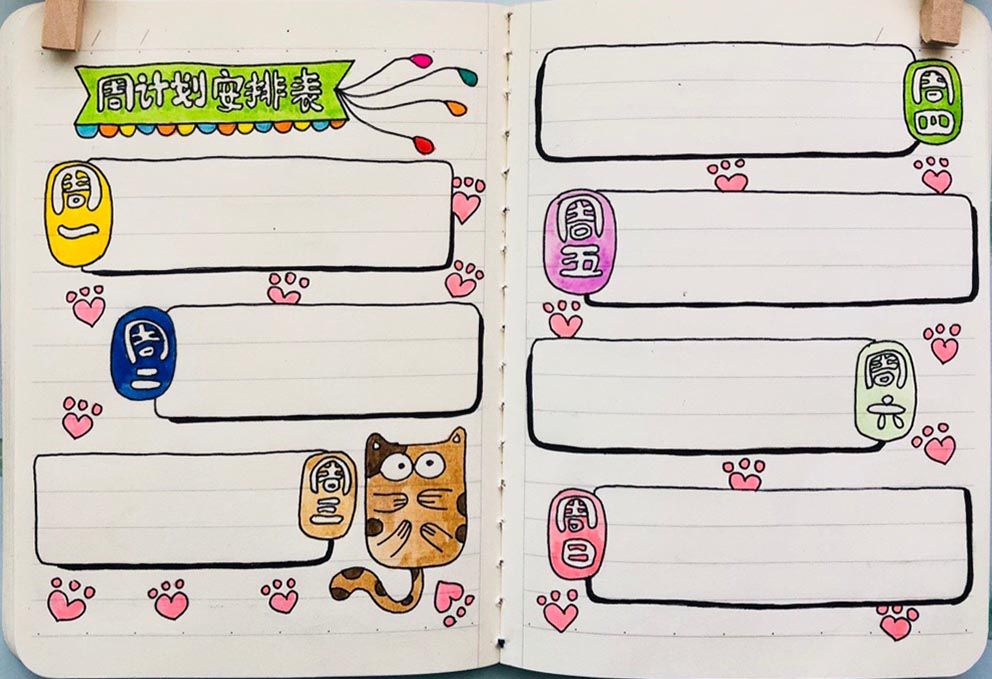 周计划安排表
周一
周二
周三
周四
周五
周六
周日